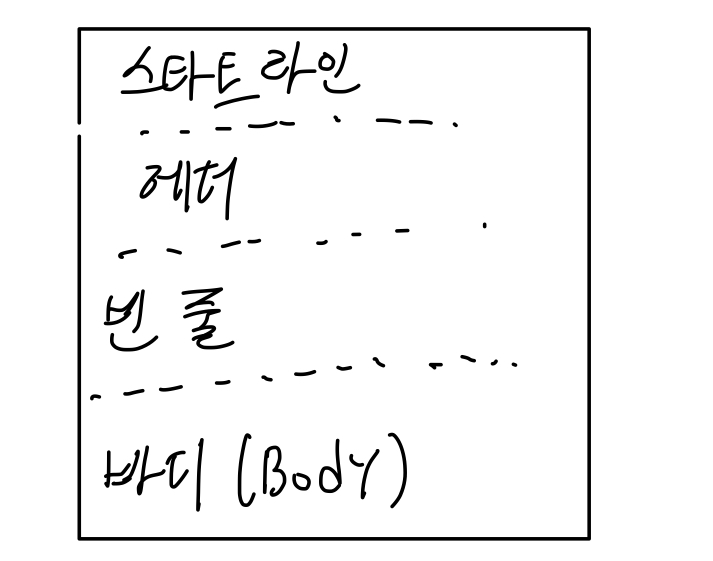 스타트 라인
헤더
빈 줄
바디 (Body)